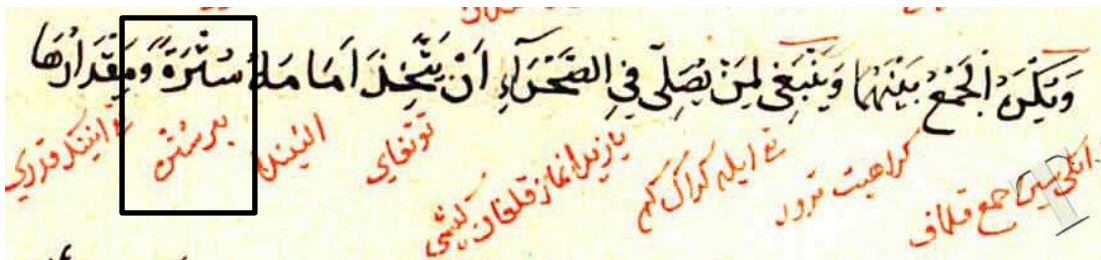 وَيُكْرَهُ الْجَمْعُ بَيْنَهُمَا وَيَنْبَغِى لِمَنْ يُصَلِّى فِى الصَّحْرَآءِ اَنْ يَتَّخِذَ اَمَامَهُ سُتْرَةً وَمِقْدَارُهَا
ایکی سین جمع قلماق كراهیت ترور ایله كراك كم یازیدا نماز قلغان كیشی توتغای الیندا بر سُتره انینك قدری